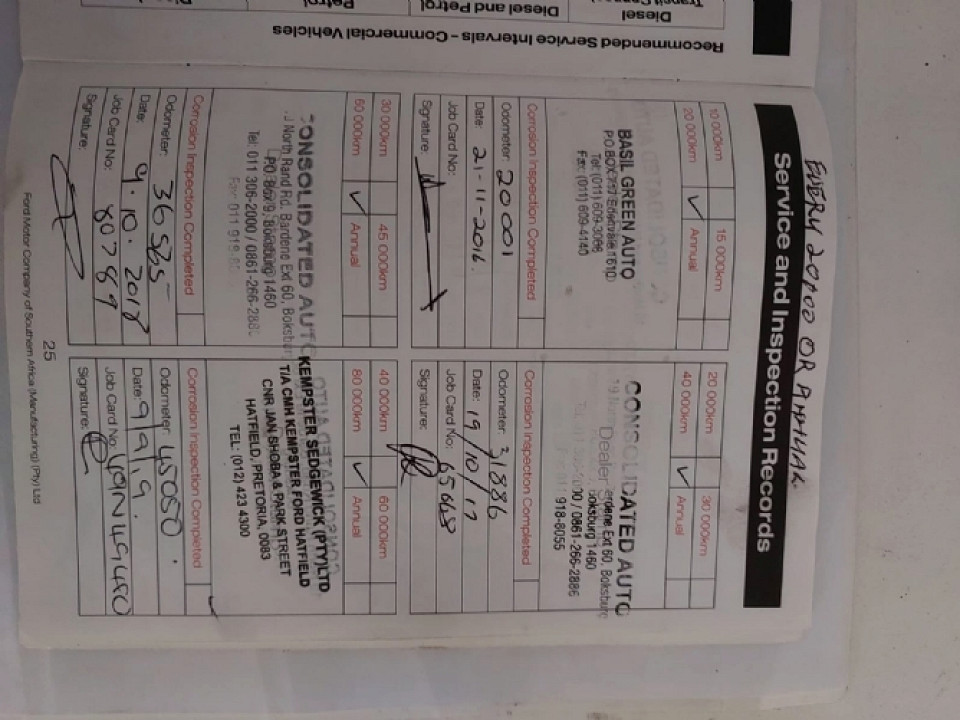 Recommended Service Intervals - Commercial Vehicles
Diesel
Diesel and Petrol
Petrol
EVERY 20,000 OR ANNUAL
Service and Inspection Records
10 000km
15 000km
20 000km ✓ Annual
BASIL GREEN AUTO
PO BOX 757 Edenvale 1610
Tel: (011) 609-3096
Fax: (011) 609-4140
Corrosion Inspection Completed
Odometer: 20001
Date: 21-11-2016
Job Card No:
Signature:
20 000km
30 000km
40 000km ✓ Annual
CONSOLIDATED AUTO
Dealer
erdene Ext 60, Boksburg
Boksburg 1460
00 / 0861-266-2886
918-8055
Corrosion Inspection Completed
Odometer: 31886
Date: 19/10/17
Job Card No: 65663
Signature:
30 000km
45 000km
60 000km ✓ Annual
CONSOLIDATED AUTO
North Rand Rd. Bardene Ext 60, Boksburg
PO Box 9, Boksburg 1460
Tel: 011 306-2000 / 0861-266-288
Fax: 011 918-8
Corrosion Inspection Completed
Odometer: 36585
Date: 9.10.2018
Job Card No: 807889
Signature:
40 000km
60 000km
80 000km ✓ Annual
KEMPSTER SEDGEWICK (PTY)LTD
T/A CMH KEMPSTER FORD HATFIELD
CNR JAN SHOBA & PARK STREET
HATFIELD, PRETORIA, 0083
TEL: (012) 423 4300
Corrosion Inspection Completed ✓
Odometer: 45050.
Date: 9/9/19.
Job Card No:
Signature:
25
Ford Motor Company of Southern Africa (Manufacturing) (Pty) Ltd